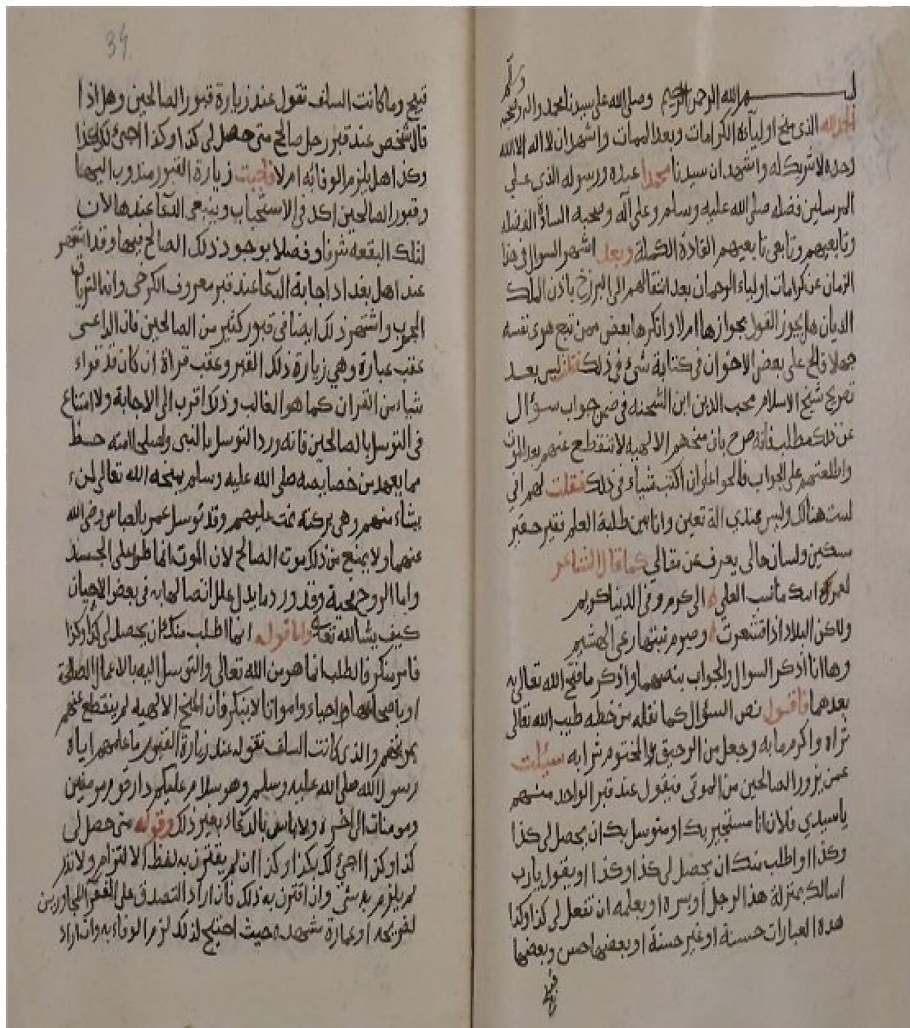 بسم الله الرحمن الرحيم وصلى الله على سيدنا محمد واله وصحبه
وسلم
الحمد لله الذي منح اوليآءه الكرامات وبعد الممات واشهد ان لا اله الا الله
وحده لا شريك له واشهد ان سيدنا محمدا عبده ورسوله الذي على
المرسلين فضله صلى الله عليه وسلم وعلى آله وصحبه الفضله
وتابعيهم وتابعي تابعيهم القادة الكملة وبعد اشتهر السوال في هذا
الزمان عن كرامات اولياء الرحمان بعد انتقالهم الى البرزخ باذن الملك
الديان هل يجوز القول بجوازها ام لا وانكرها بعض ممن تبع هوى نفسه
جهلا فالح على بعض الاخوان في كتابة شيء في ذلك فقلت ليس بعد
تصريح شيخ الاسلام محب الدين ابن الشحنه في ضمن جواب سؤال
عن ذلك مطلب فانه صرح بان منحهم الالهية لا تنقطع عنهم بعد الموت
واطلعتهم على الجواب فالحوا على ان اكتب شيأ في ذلك فقلت لهم اني
لست هنالك وليس عندي الة تعين وانا من طلبة العلم فقير حقير
مسكين ولسان حالي يعرف عن مقالي كما قال الشاعر
لعمر ابيك ما نسب العلي الى كرم وفي الدنيا كريم
ولاكن البلاد اذا اقشعرت وصوح نبتها رعي الهشيم
وها انا اذكر السوال والجواب بنصهما واذكر ما فتح الله تعالى به
بعدهما فاقول نص السؤال كما نقله من خطه طيب الله تعالى
ثراه واكرم مابه وجعل من الرحيق المختوم شرابه سيلت
عمن يزور الصالحين من الموتى فيقول عند قبر الواحد منهم
يا سيدي فلان انا مستجير بك او متوسل بك ان يحصل لي كذا
وكذا او اطلب منك ان يحصل لي كذا وكذا او يقول يارب
اسالك بمنزلة هذا الرجل او بسره او بعلمه ان تفعل لي كذا وكذا
هذه العبارات حسنة او غير حسنة او بعضها حسن وبعضها
قبيح
34
قبيح وما كانت السلف تقول عند زيارة قبور الصالحين وهل اذا
قال شخص عند قبر رجل صالح متى حصل لي كذا وكذا اجئ لك بكذا
وكذا هل يلزم الوفاء به ام لا فاجبت زيارة القبور مندوب اليها
وقبور الصالحين اكد في الاستحباب وينبغي الدعآ عندها لان
لتلك البقعة شرفا وفضلا بوجود ذلك الصالح فيها وقد اشتهر
عند اهل بغداد اجابة الدعآ عند قبر معروف الكرخي وانه الترياق
المجرب واشتهر ذلك ايضا في قبور كثير من الصالحين فان الداعي
عقب عبارة وهي زيارة ذلك القبر وعقب قراة ان كان قد قراء
شيا من القران كما هو الغالب وذلك اقرب الى الاجابة ولا امتناع
في التوسل بالصالحين فانه ورد التوسل بالنبي وبصلحا امته حسبما
مما يعهد من خصايصه صلى الله عليه وسلم يمنحه الله تعالى لمن
يشاء منهم وهي بركته عليهم وقد توسل عمر بالعباس رضي الله
عنهما ولا يمنع من ذلك موته الصالح لان الموت انما طرا على الجسد
واما الروح فحية وقد ورد ما يدل على اتصالها به في بعض الاحيان
كيف يشآ الله تعالى واما قوله انما اطلب منك ان يحصل لي كذا وكذا
فامر منكر فالطلب انما هو من الله تعالى والتوسل اليه بالاعمال الصالحة
او باصحابها احياء وامواتا لا ينكر فان المنح الالهية لم ينقطع عنهم
بموتهم والذي كانت السلف تقوله عند زيارة القبور ما علمهم اياه
رسول الله صلى الله عليه وسلم وهو سلام عليكم دار قوم مومنين
ومومنات الى اخره ولا باس بالدعاء بغير ذلك وقوله متى حصل لي
كذا وكذا اجئ لك بكذا وكذا ان لم يقترن به لفظ الالتزام ولا نذر
لم يلزم به شئ وان اقترن به ذلك فان اراد التصدق على الفقرآ المجاورين
لضريحه او عمارة مشهده حيث احتيج لذلك لزم الوفاء به وان اراد